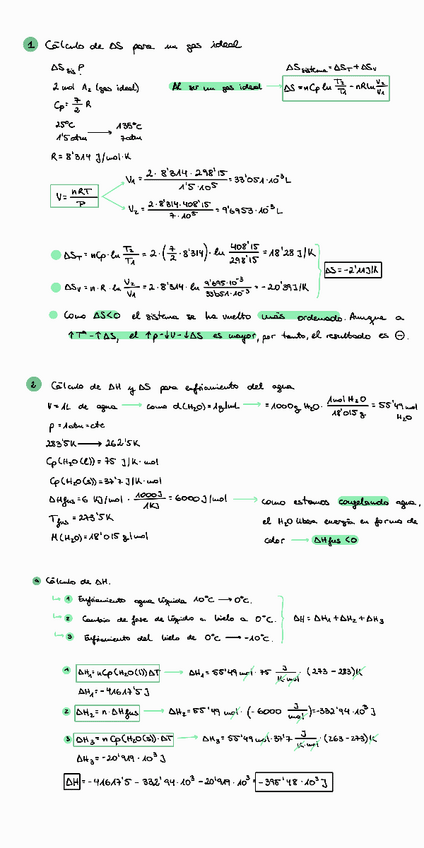 1 Cálculo de ΔS para un gas ideal
ΔS sis ?
ΔS sistema = ΔS_T + ΔS_V
2 mol A₂ (gas ideal)
Al ser un gas ideal → ΔS = n Cp ln T₂/T₁ - nR ln V₂/V₁
Cp = 7/2 R
25°C → 135°C
1'5 atm 7 atm
R = 8'314 J/mol·K
V = nRT/P
V₁ = 2·8'314·298'15 / 1'5·10⁵ = 33'051·10⁻³ L
V₂ = 2·8'314·408'15 / 7·10⁵ = 9'6953·10⁻³ L
ΔS_T = nCp·ln T₂/T₁ = 2·(7/2·8'314)·ln 408'15/298'15 = 18'28 J/K
ΔS = -2'11 J/K
ΔS_V = n·R·ln V₂/V₁ = 2·8'314·ln 9'695·10⁻³/33'051·10⁻³ = -20'39 J/K
Como ΔS<0 el sistema se ha vuelto más ordenado. Aunque a
↑Tª-↑ΔS, el ↑p-↓V-↓ΔS es mayor, por tanto, el resultado es ⊖.
2 Cálculo de ΔH y ΔS para enfriamiento del agua
V = 1L de agua → como d(H₂O) = 1g/mL → = 1000g H₂O · 1mol H₂O / 18'015 g = 55'49 mol H₂O
p = 1atm = cte
283'5K → 262'5K
Cp(H₂O(l)) = 75 J/K·mol
Cp(H₂O(s)) = 37'7 J/K·mol
ΔHfus = 6 KJ/mol · 1000J/1KJ = 6000 J/mol → como estamos congelando agua,
Tfus = 273'5K
el H₂O libera energía en forma de
M(H₂O) = 18'015 g/mol
calor → ΔHfus <0
Cálculo de ΔH.
1 Enfriamiento agua líquida 10°C → 0°C.
2 Cambio de fase de líquido a hielo a 0°C.
ΔH = ΔH₁ + ΔH₂ + ΔH₃
3 Enfriamiento del hielo de 0°C → -10°C.
1 ΔH₁ = nCp(H₂O(l))ΔT → ΔH₁ = 55'49 mol · 75 J/K·mol · (273-283)K
ΔH₁ = -41617'5 J
2 ΔH₂ = n·ΔHfus → ΔH₂ = 55'49 mol · (-6000 J/mol) = -332'94·10³ J
3 ΔH₃ = nCp(H₂O(s))·ΔT → ΔH₃ = 55'49 mol · 37'7 J/K·mol · (263-273)K
ΔH₃ = -20'919·10³ J
ΔH = -41617'5 - 332'94·10³ - 20'919·10³ = -395'48·10³ J